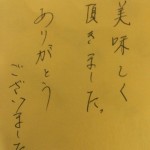 美味しく
頂きました。
ありがとう
ございました